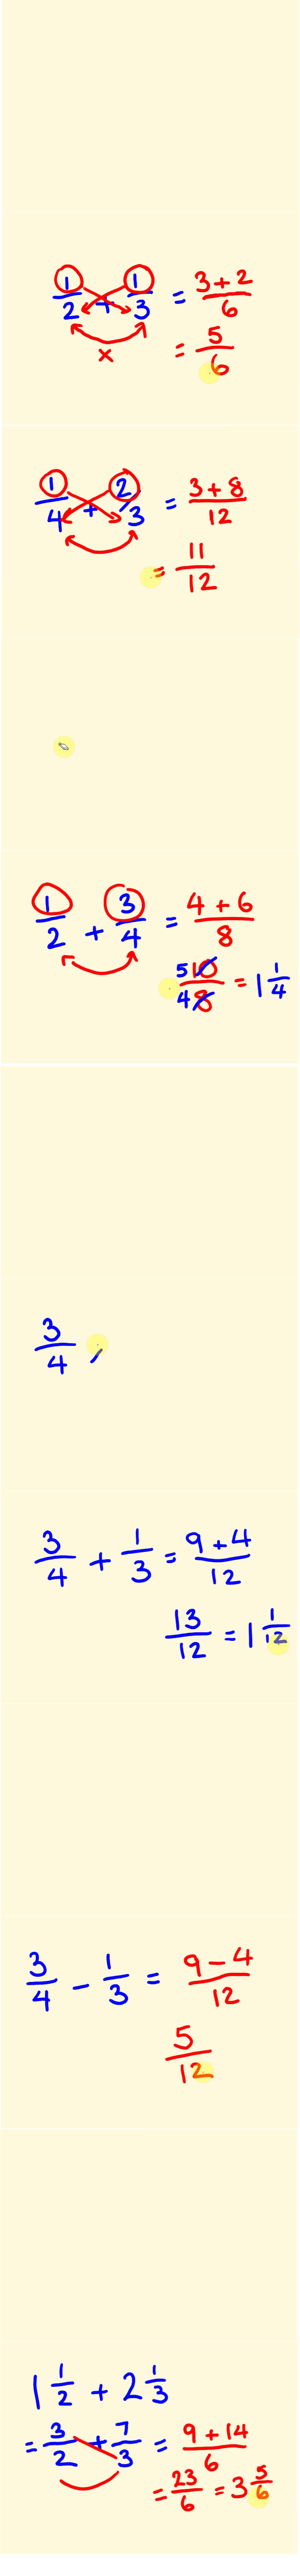 1/2 + 1/3 = (3 + 2)/6
×
= 5/6
1/4 + 2/3 = (3 + 8)/12
= 11/12
1/2 + 3/4 = (4 + 6)/8
5 10/4 8 = 1 1/4
3/4
3/4 + 1/3 = (9 + 4)/12
13/12 = 1 1/12
3/4 - 1/3 = (9 - 4)/12
5/12
1 1/2 + 2 1/3
= 3/2 + 7/3 = (9 + 14)/6
= 23/6 = 3 5/6